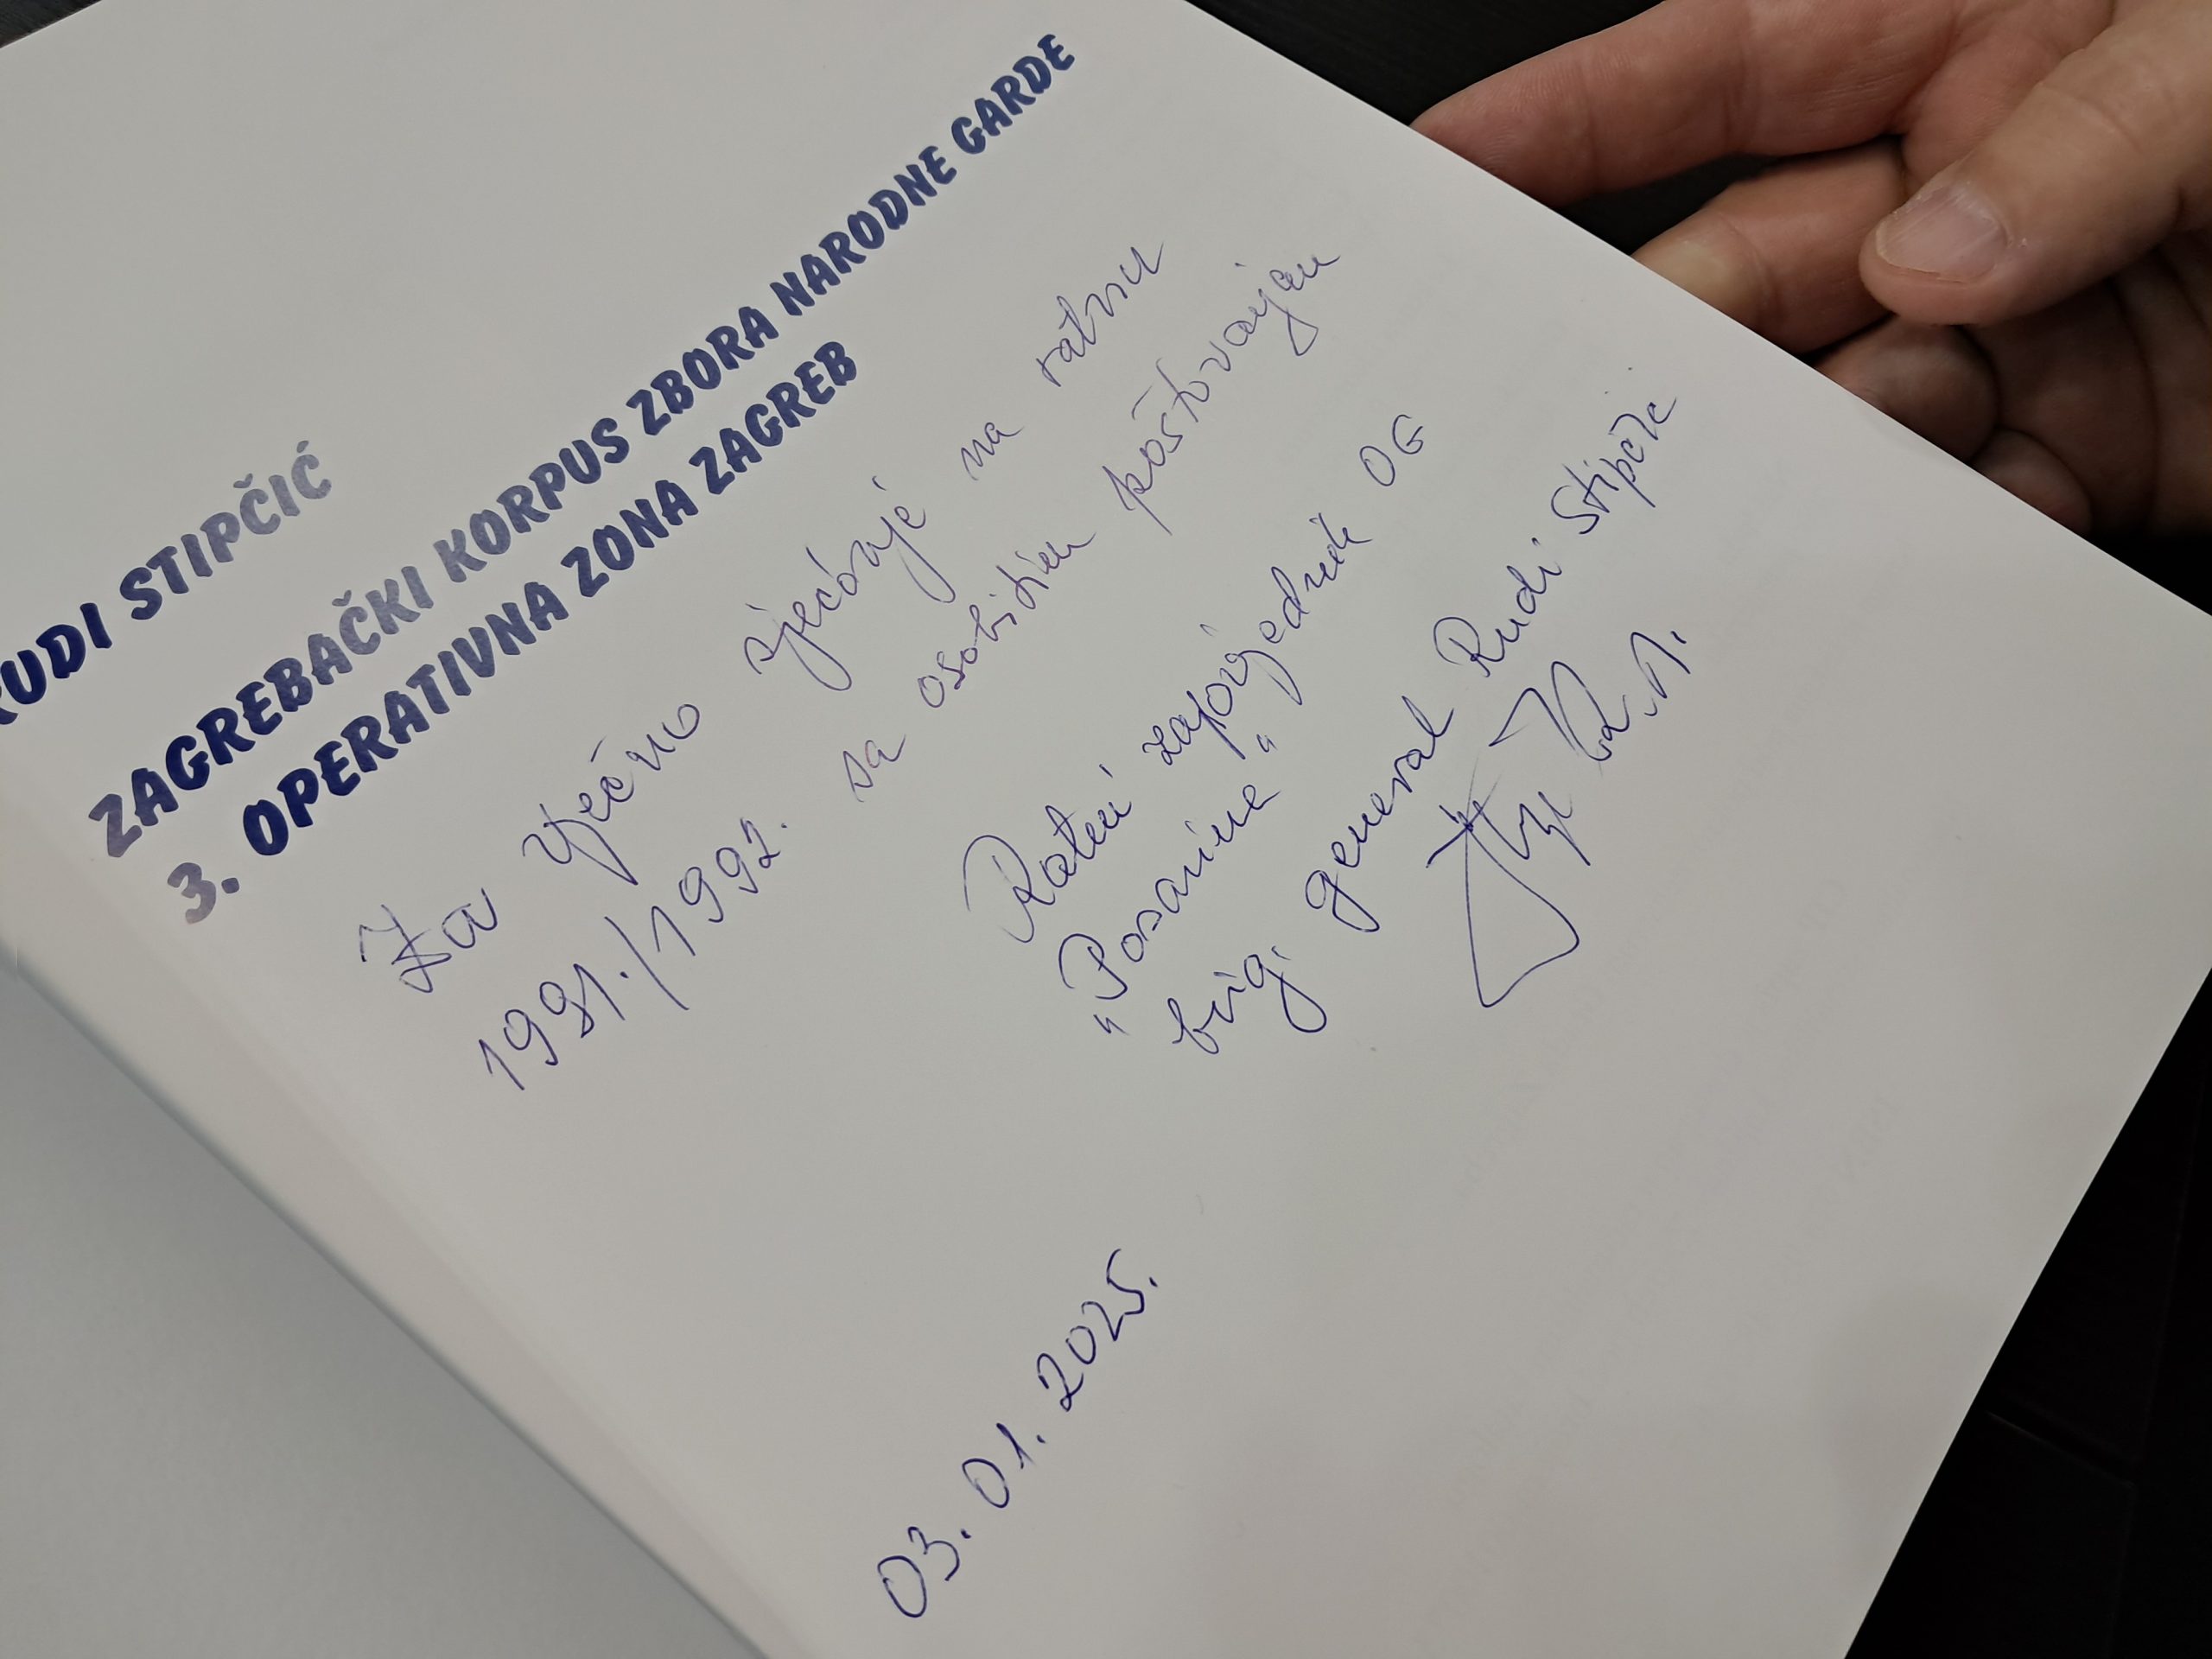 RUDI STIPČIĆ
ZAGREBAČKI KORPUS ZBORA NARODNE GARDE
3. OPERATIVNA ZONA ZAGREB
Za vječno sjećanje na ratnu
1991./1992. sa osobitim poštovanjem
Ratni zapovjednik OG
"Posavina"
brig. general Rudi Stipčić
03.01.2025.